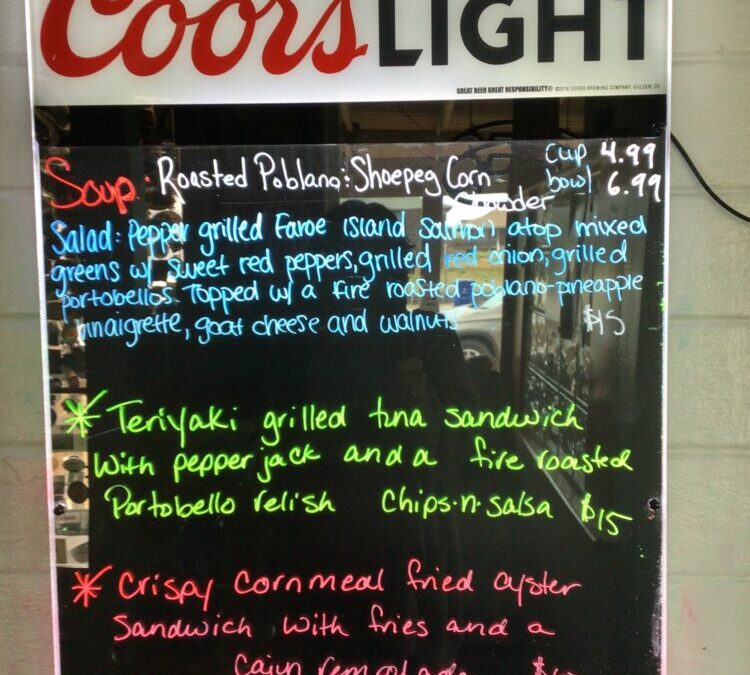 Coors LIGHT
GREAT BEER GREAT RESPONSIBILITY® ©2018 COORS BREWING COMPANY, GOLDEN, CO
Soup: Roasted Poblano: Shoepeg Corn
Chowder
cup 4.99
bowl 6.99
Salad: Pepper grilled Faroe island Salmon atop mixed
greens w/ sweet red peppers, grilled red onion, grilled
portobellos. Topped w/ a fire roasted poblano-pineapple
vinaigrette, goat cheese and walnuts $15
* Teriyaki grilled tuna sandwich
with pepper jack and a fire roasted
Portobello relish Chips-n-salsa $15
* Crispy Cornmeal fried oyster
Sandwich with fries and a
Cajun remoulade